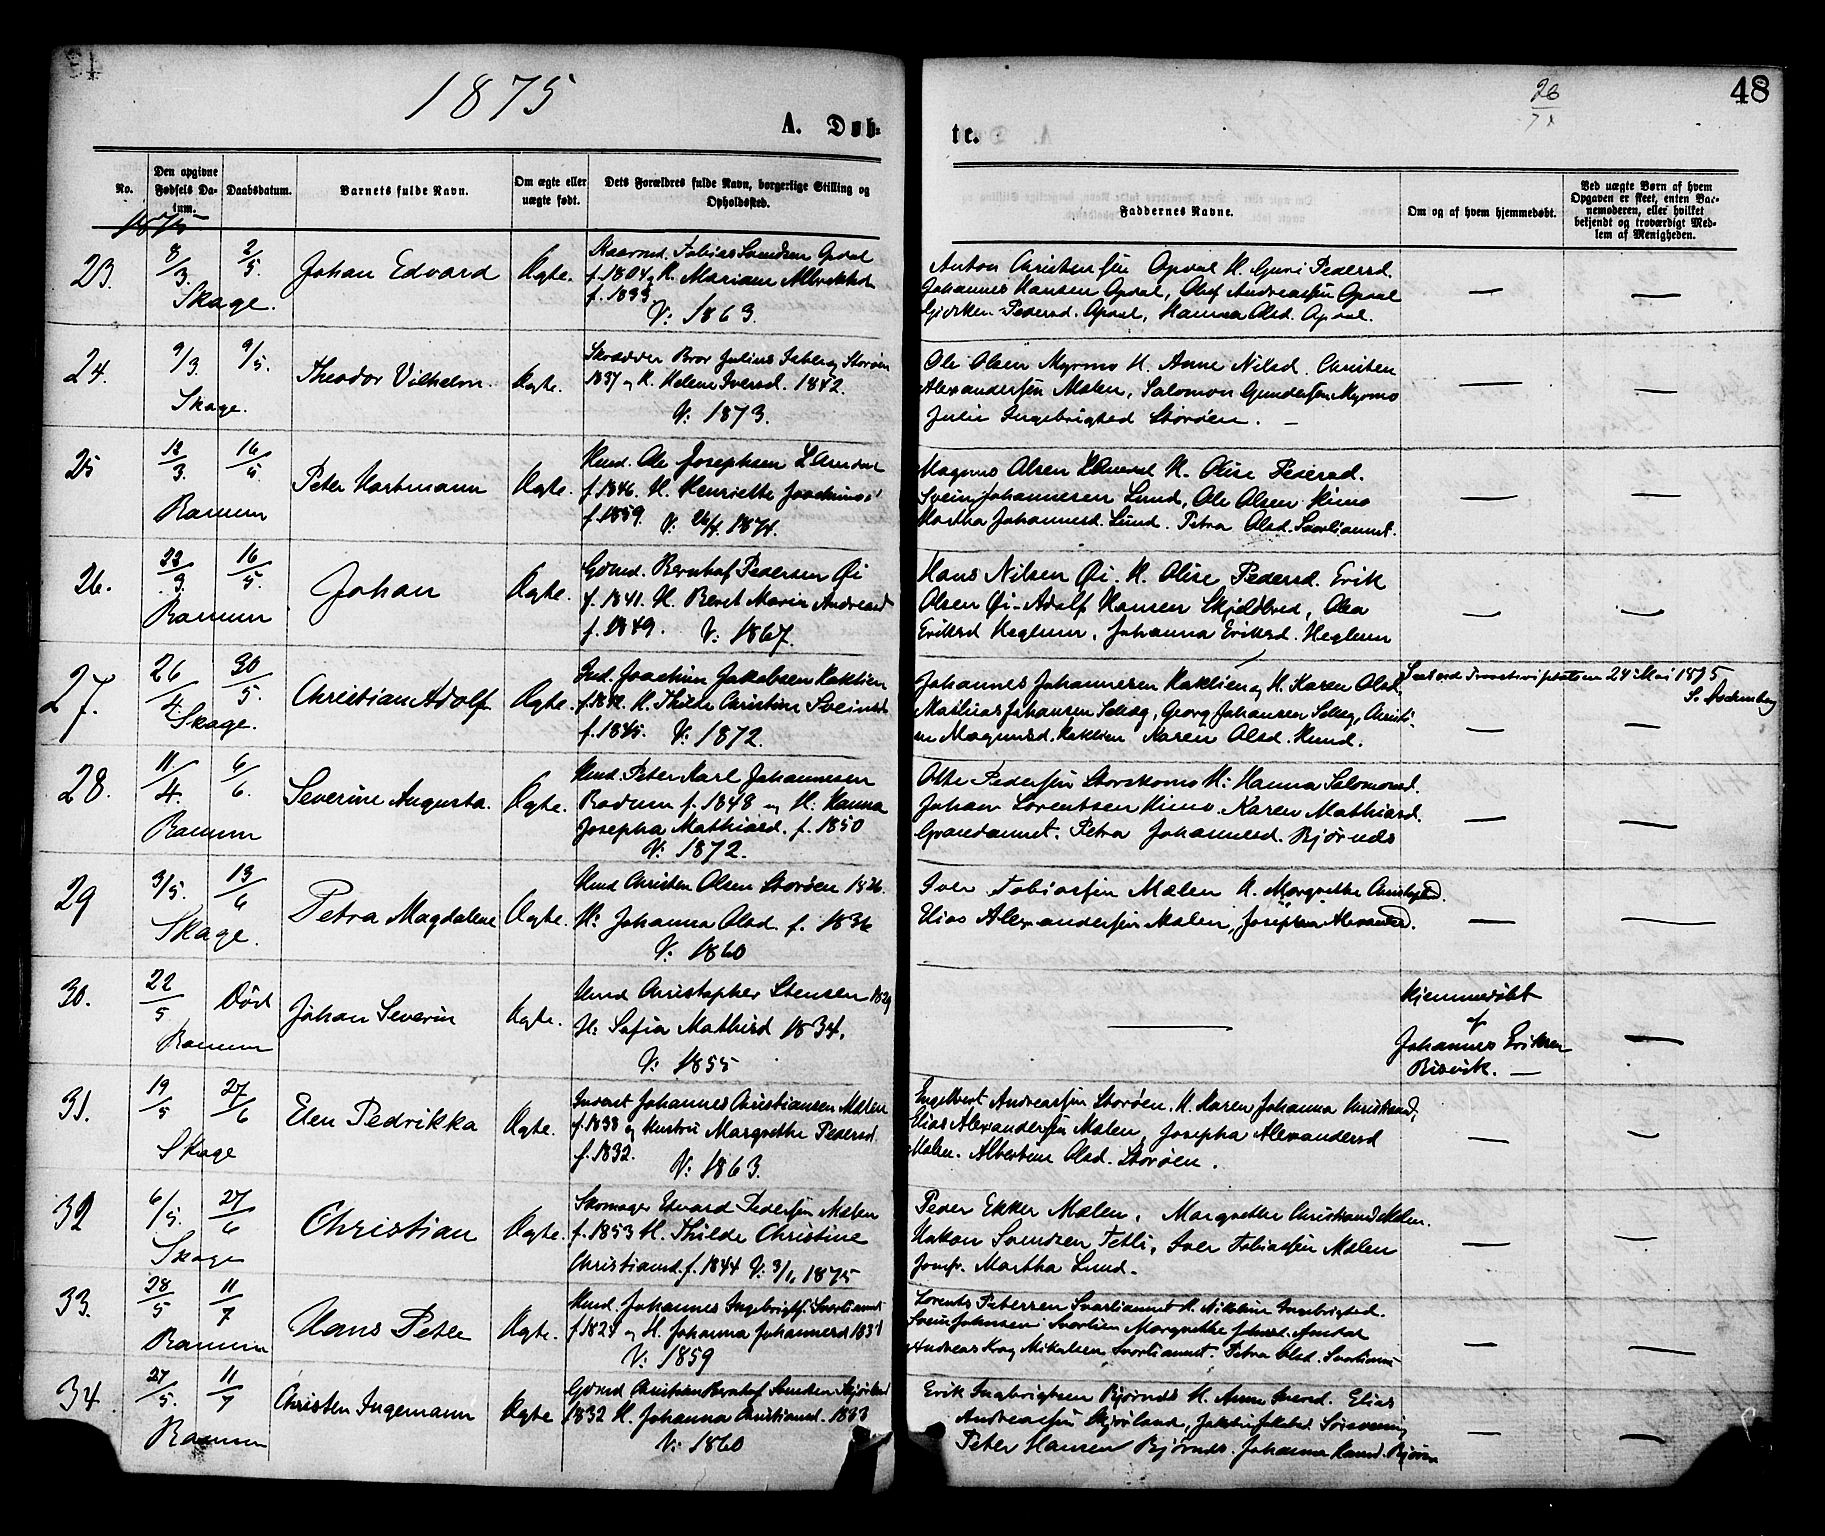 1875
26
7
48
A. Døb-
te.
No.
Den opgivne Fødsels Da-tum.
Daabsdatum.
Barnets fulde Navn.
Om ægte eller uægte født.
Dets Forældres fulde Navn, borgerlige Stilling og Opholdssted.
Faddernes Navne.
Om og af hvem hjemmedøbt.
Ved uægte Børn af hvem Opgaven er skeet, enten Bar-nemoderen, eller hvilket bekjendt og troværdigt Med-lem af Menigheden.
1875
23. 8/3. 2/5. Johan Edvard Ægte. Tobias Svendsen Opdal
Skage. f. 1804 og H. Mariane
V: 1863.
Anton Christensen Opdal H. Guri Pedersd.
Johannes Hansen Opdal, Oluf Andreassen Opdal
Pedersd. Opdal, Hanna Olsd. Opdal.
24. 9/3. 9/5. Theodor Vilhelm. Ægte. Skrædder Bror Julius Storøen
Skage. 1837 og H. Helene Iversd. 1842.
V: 1873.
Ole Olsen Myrmo H. Anne Nilsd. Christen
Alexandersen Mælen, Salomon Gundersen Myrmo
Julie Ingebrigtsd Storøen. —
25 12/3. 16/5. Peter Hartmann Ægte. Husmd. Ole Josephsen
Ranum f. 1846. H. Henriette Joachimsd
f. 1859. V. 26/4. 1874.
Magnus Olsen H. Olise Pedersd.
Svein Johannesen Lund, Ole Olsen Himo
Martha Johannesd. Lund. Petra Olsd. Svarliaunet.
26. 22/3. 16/5. Johan Ægte. Gdmd. Bernhof Pedersen Øi
Ranum f. 1841. H. Beret Maria Andreasd
f. 1849. V: 1867.
Hans Nilsen Øi. H. Olise Pedersd. Erik
Olsen Øi - Adolf Hansen Skjeldbred, Olea
Eriksd Heglum, Johanna Eriksd. Heglum
27. 26/4. 30/5. Christian Adolf Ægte. Ind. Joachim Jakobsen Kaklien
Skage. H. Thilde Christine Sveinsd.
f. 1845. V: 1872.
Johannes Johannesen Kaklien og H. Karen Olsd.
Mathias Johansen Selieg, Georg Johansen Selieg, Christi-
ne Magnusd. Kaklien Karen Olsd. Hund.
24 Mai 1875
28. 11/4. 6/6. Severine Augusta. Ægte. Husmd. Peter Karl Johannesen
Ranum f. 1848 og H. Hanna
Josepha Mathiasd. f. 1850
V: 1872.
Otte Pedersen Storskomo H: Hanna Salomonsd.
Johan Lorentsen Himo. Karen Mathiasd.
Grandaunet. Petra Johannesd. Bjørnes
29 3/5. 13/6 Petra Magdalene Ægte. Husmd Christen Olsen Storøen 1826.
Skage. H: Johanna Olsd. f. 1836
V: 1860
Iver Tobiassen Mælen H. Margrethe
Elias Alexandersen Mælen, Josepha Alexandersd.
30. 22/5 Død Johan Severin Ægte. Husmd Christopher Stensen 1829
Ranum H: Sofia Mathisd 1834.
V: 1855
Hjemmedøbt
af
Johannes Eriksen
Risvik. —
31. 19/5 27/6 Elen Pedrikka Ægte. Johannes Christiansen Mælen
Skage f. 1838 og Hustru Margrethe Pedersd.
f. 1832. V: 1863.
Engelbert Andreassen Storøen. H. Karen Johanna
Elias Alexandersen Mælen, Josepha Alexandersd
Mælen. Albertine Olsd. Storøen.
32 6/5. 27/6 Christian Ægte. Skomager Edvard Pedersen Mælen
Skage f. 1853 H. Thilde Christine
Christiansd. f. 1844 V: 3/1, 1875
Peder Ekker Mælen. Margrethe Mælen.
Hakon Svendsen Tetli, Iver Tobiassen Mælen
Jomfr. Martha Lund.
33. 28/5 11/7 Hans Peter Ægte. Husmd. Johannes Svarliaunet
Ranum og H. Johanna Johannesd
V: 1859
Lorents Petersen Svarliaunet H. Nikoline Ingebrigtsd.
Svein Johnsen Svarlien Margrethe
Andreas Krog Mikalsen Svarliaunet. Petra Olsd.
34. 27/5. 11/7 Christen Ingemann Ægte Gdmd Christian Bernhof Svendsen
Ranum 1832 H. Johanna Christiansd. 1833
V: 1860
Erik Ingebrigtsen Bjørnes H. Anne Iversd. Elias
Andreassen
Peter Hansen Bjørnes. Johanna